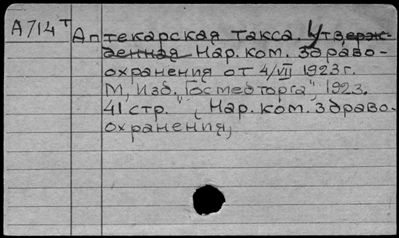 А714т
Аптекарская такса. Утвержденная Нар. ком. здраво-
охранения от 4/VII 1923 г.
М, Изд. "Госмедторга", 1923.
41 стр. (Нар. ком. здраво-
охранения,